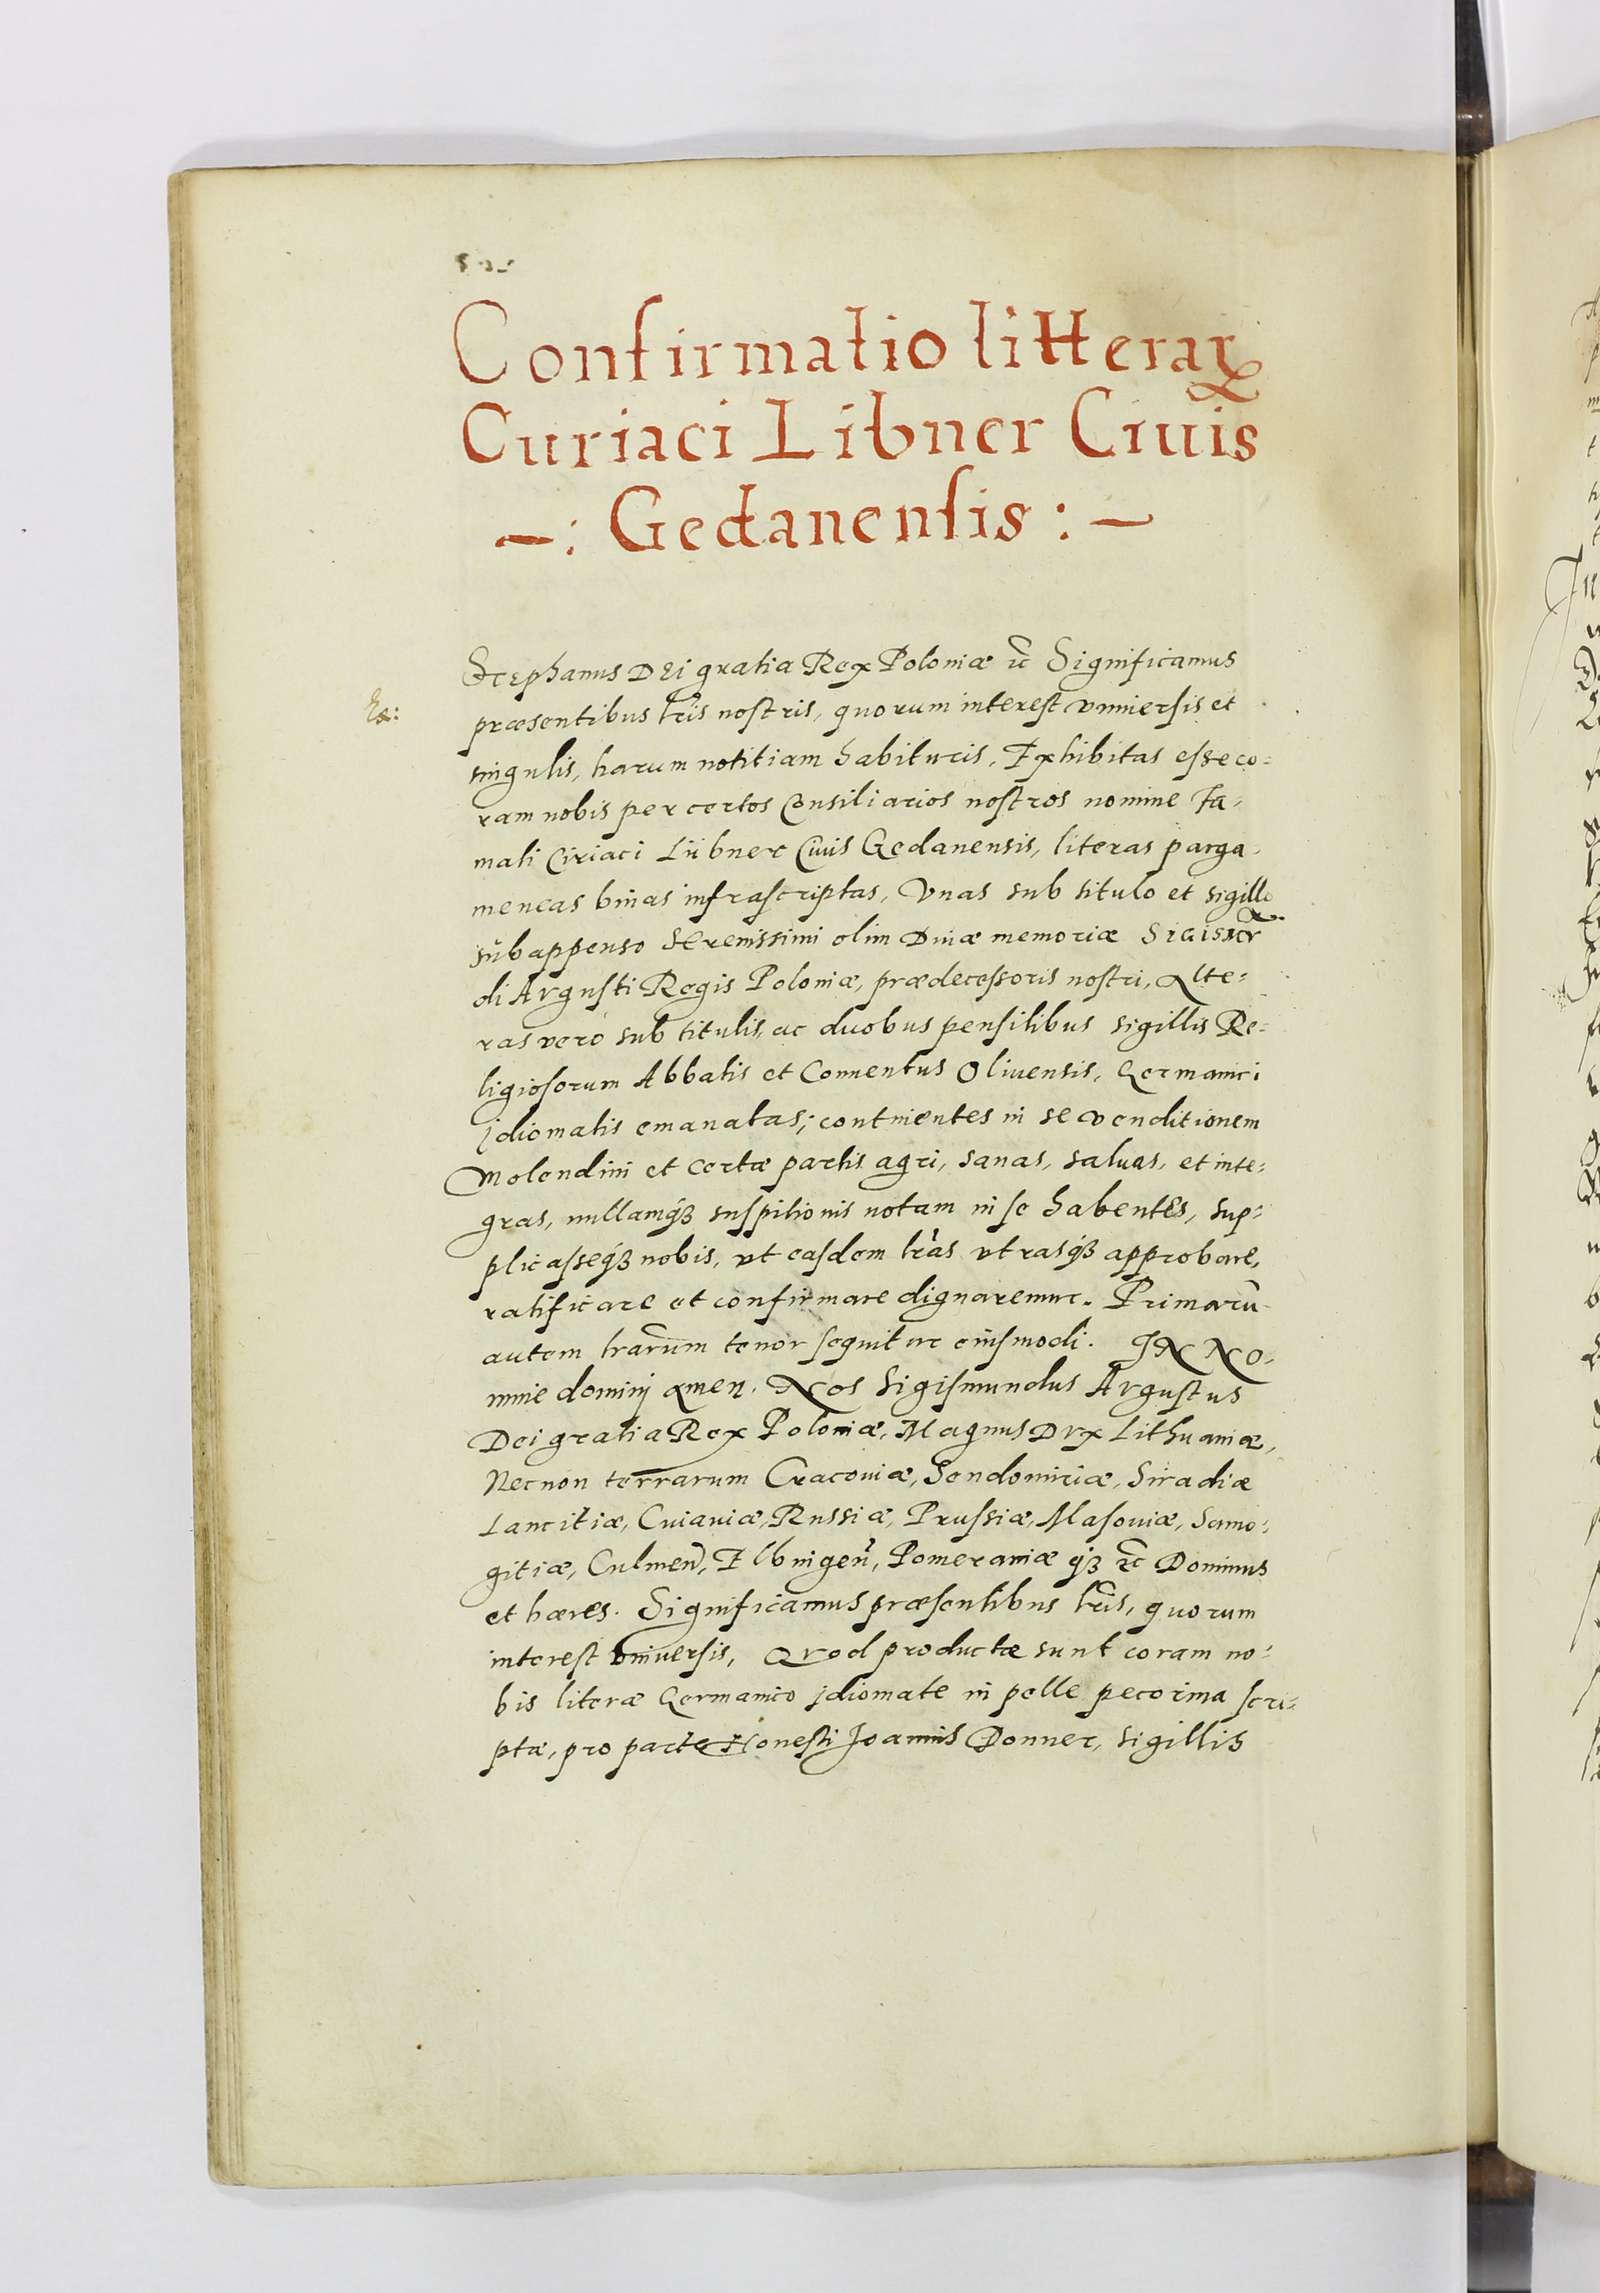 Confirmatio litterarꝝ
Curiaci Libner Ciuis
—: Gedanensis :—
Stephanus DEi gratia Rex Poloniæ ꝛc Significamus
præsentibus lr̃is nostris, quorum interest vniuersis et
singulis, harum notitiam habituris, Exhibitas esse co-
ram nobis per certos Consiliarios nostros nomine Fa-
mati Ciriaci Lübner Ciuis Gedanensis, literas parga-
meneas binas infrascriptas, Vnas sub titulo et sigillo
subappenso Serenissimi olim Diuæ memoriæ
di Avgusti Regis Poloniæ, prædecessoris nostri, Alte-
ras vero sub titulis, ac duobus pensilibus sigillis Re-
ligiosorum Abbatis et Conuentus Oliuensis, Germanici
jdiomatis emanatas; continentes in se venditionem
Molendini et certæ partis agri, sanas, saluas, et inte-
gras, nullamqꝫ suspitionis notam in se habentes, sup-
plicasseqꝫ nobis, vt easdem lr̃as vtrasqꝫ approbare,
ratificare et confirmare dignaremur. Primarũ
autem lrãrum tenor sequitur eiusmodi. IN NO-
mine dominj Amen. Nos Sigismundus Avgustus
Dei gratia Rex Poloniæ, Magnus Dvx Lithuaniæ,
Necnon terrarum Cracouiæ, Sendomiriæ, Siradiæ
Lancitiæ, Cuiauiæ, Russiæ, Prussiæ, Masouiæ, Samo-
gitiæ, Culmeñ, Elbingeñ, Pomeraniæ qꝫ ꝛc Dominus
et hæres. Significamus præsentibus lr̃is, quorum
interest vniuersis, Qvod productæ sunt coram no-
bis literæ Germanico jdiomate in pelle pecorina scri-
ptæ, pro parte Honesti Joannis Donner, sigillis